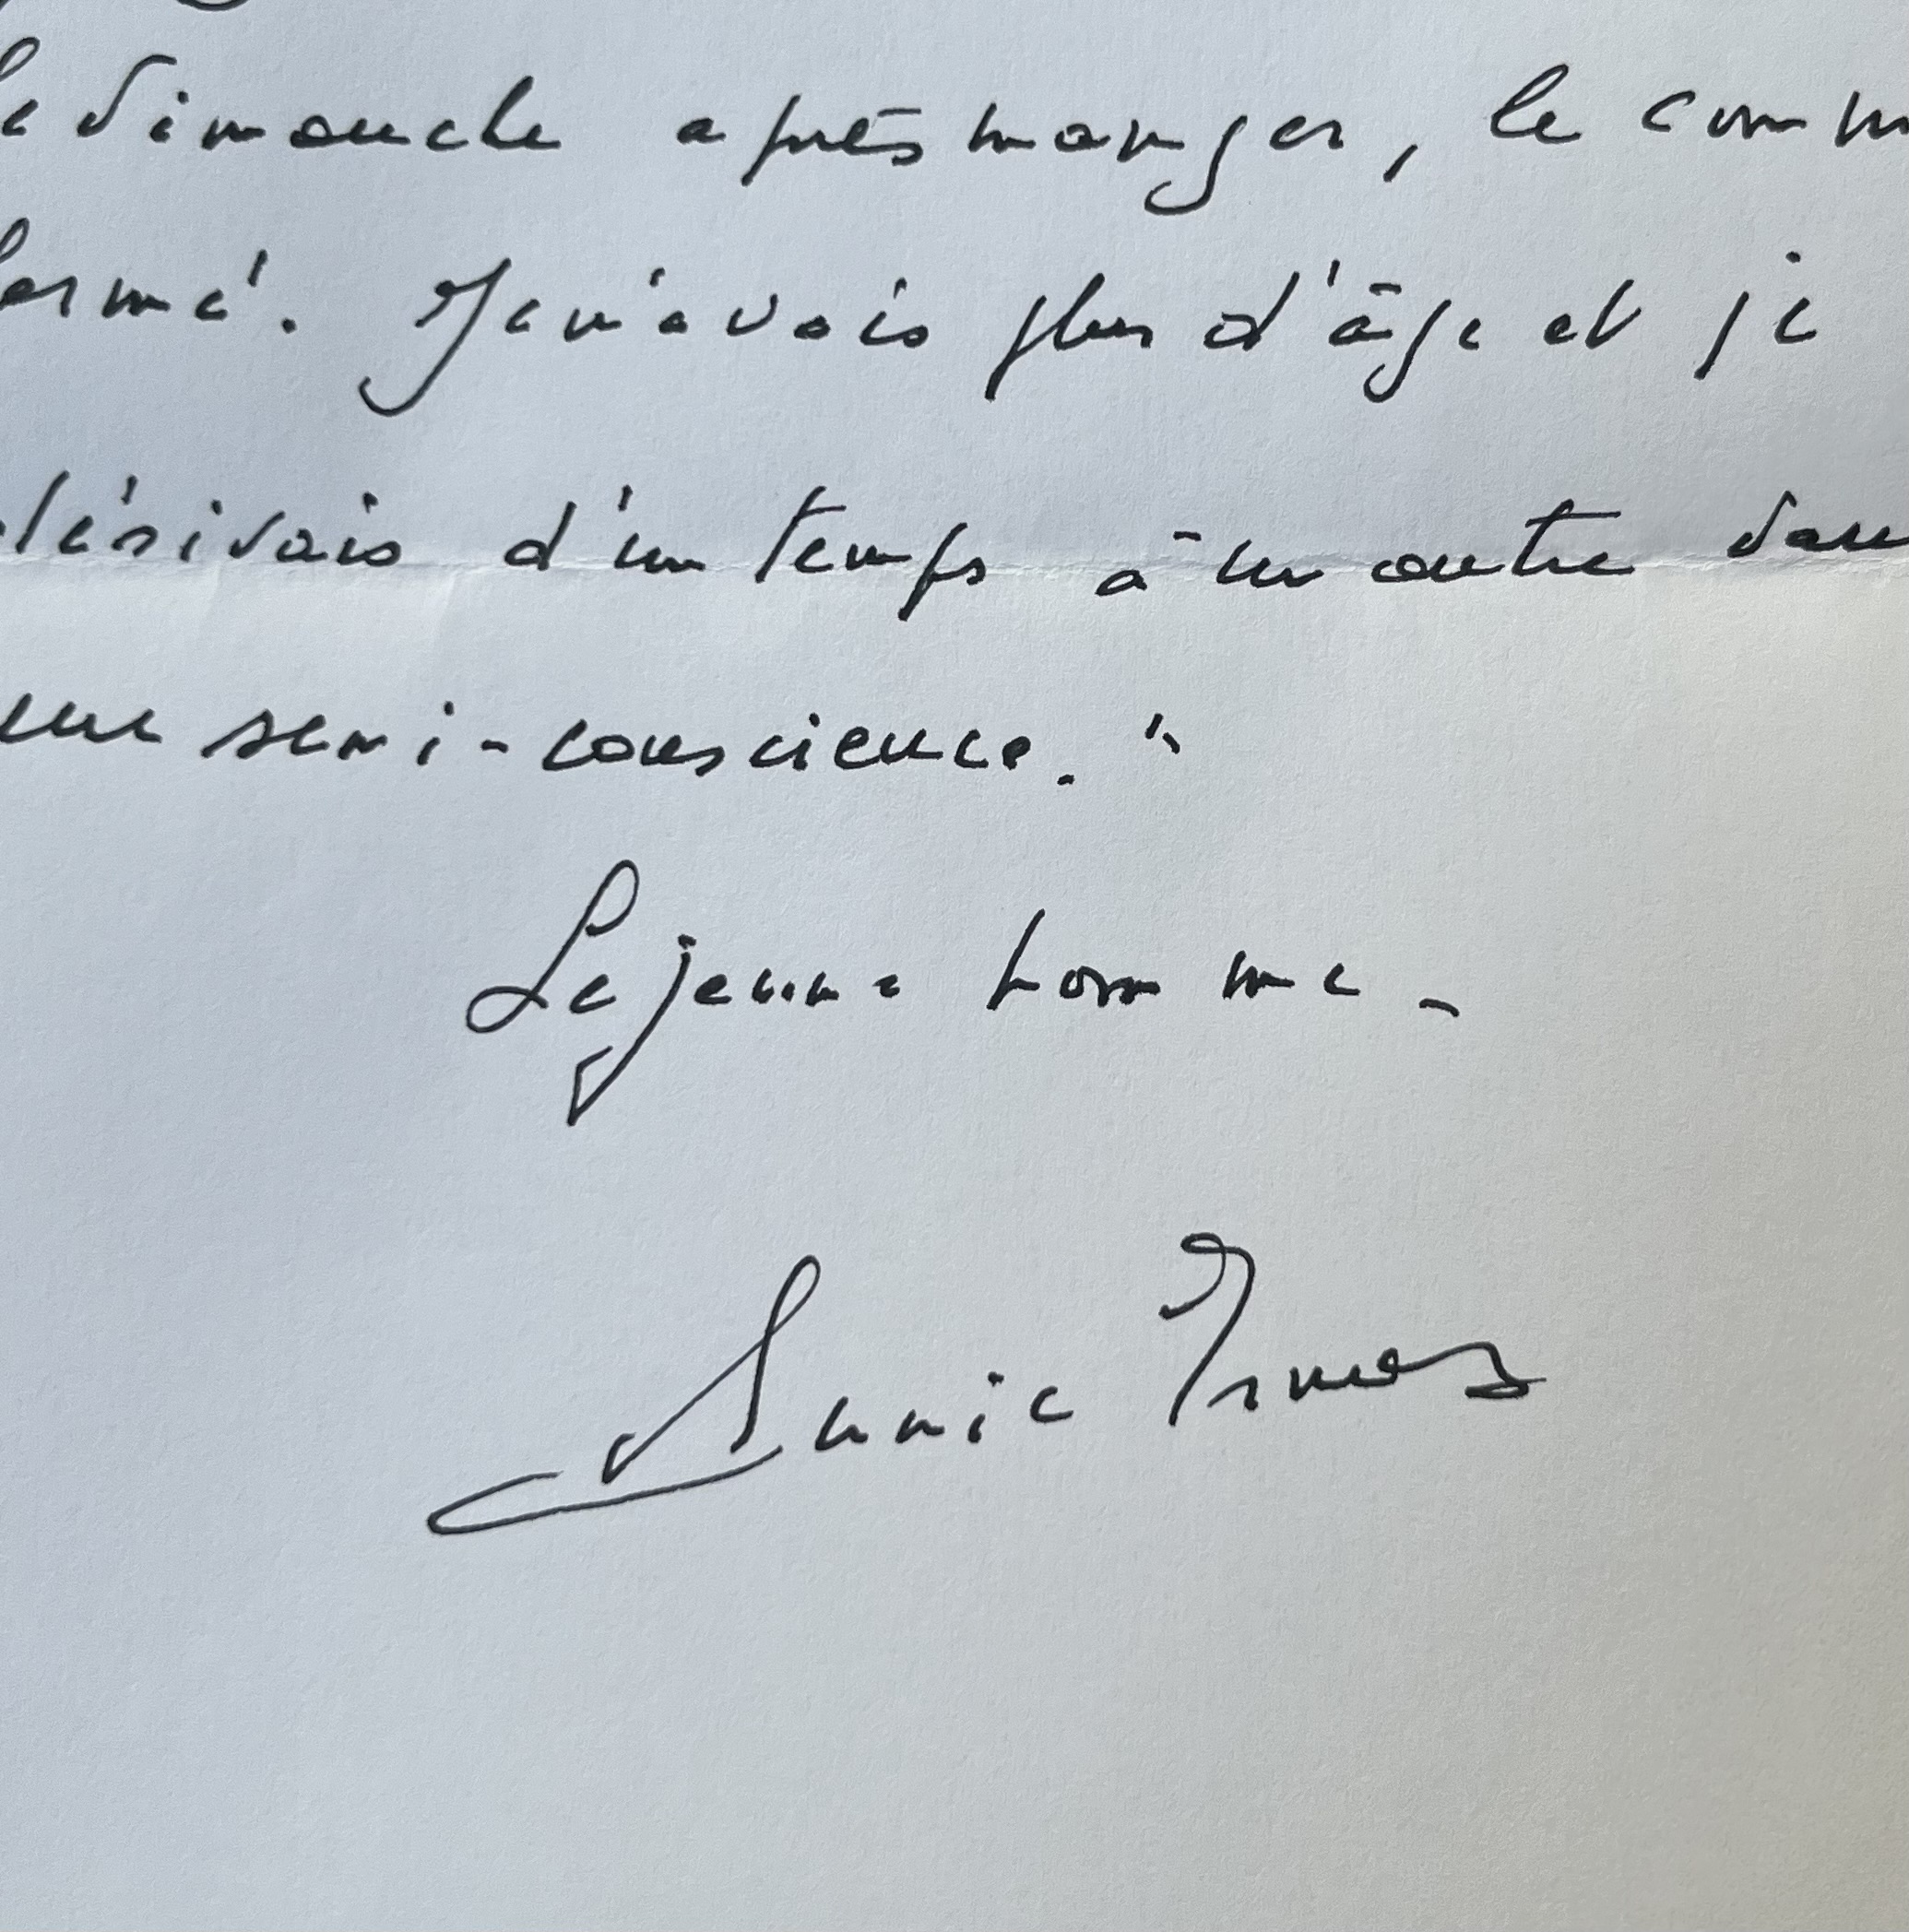 le dimanche après manger, le comm
fermé. Je n'avais plus d'âge et je
dérivais d'un temps à un autre dans
une semi-conscience. "
Le jeune homme -
Annie Ernaux